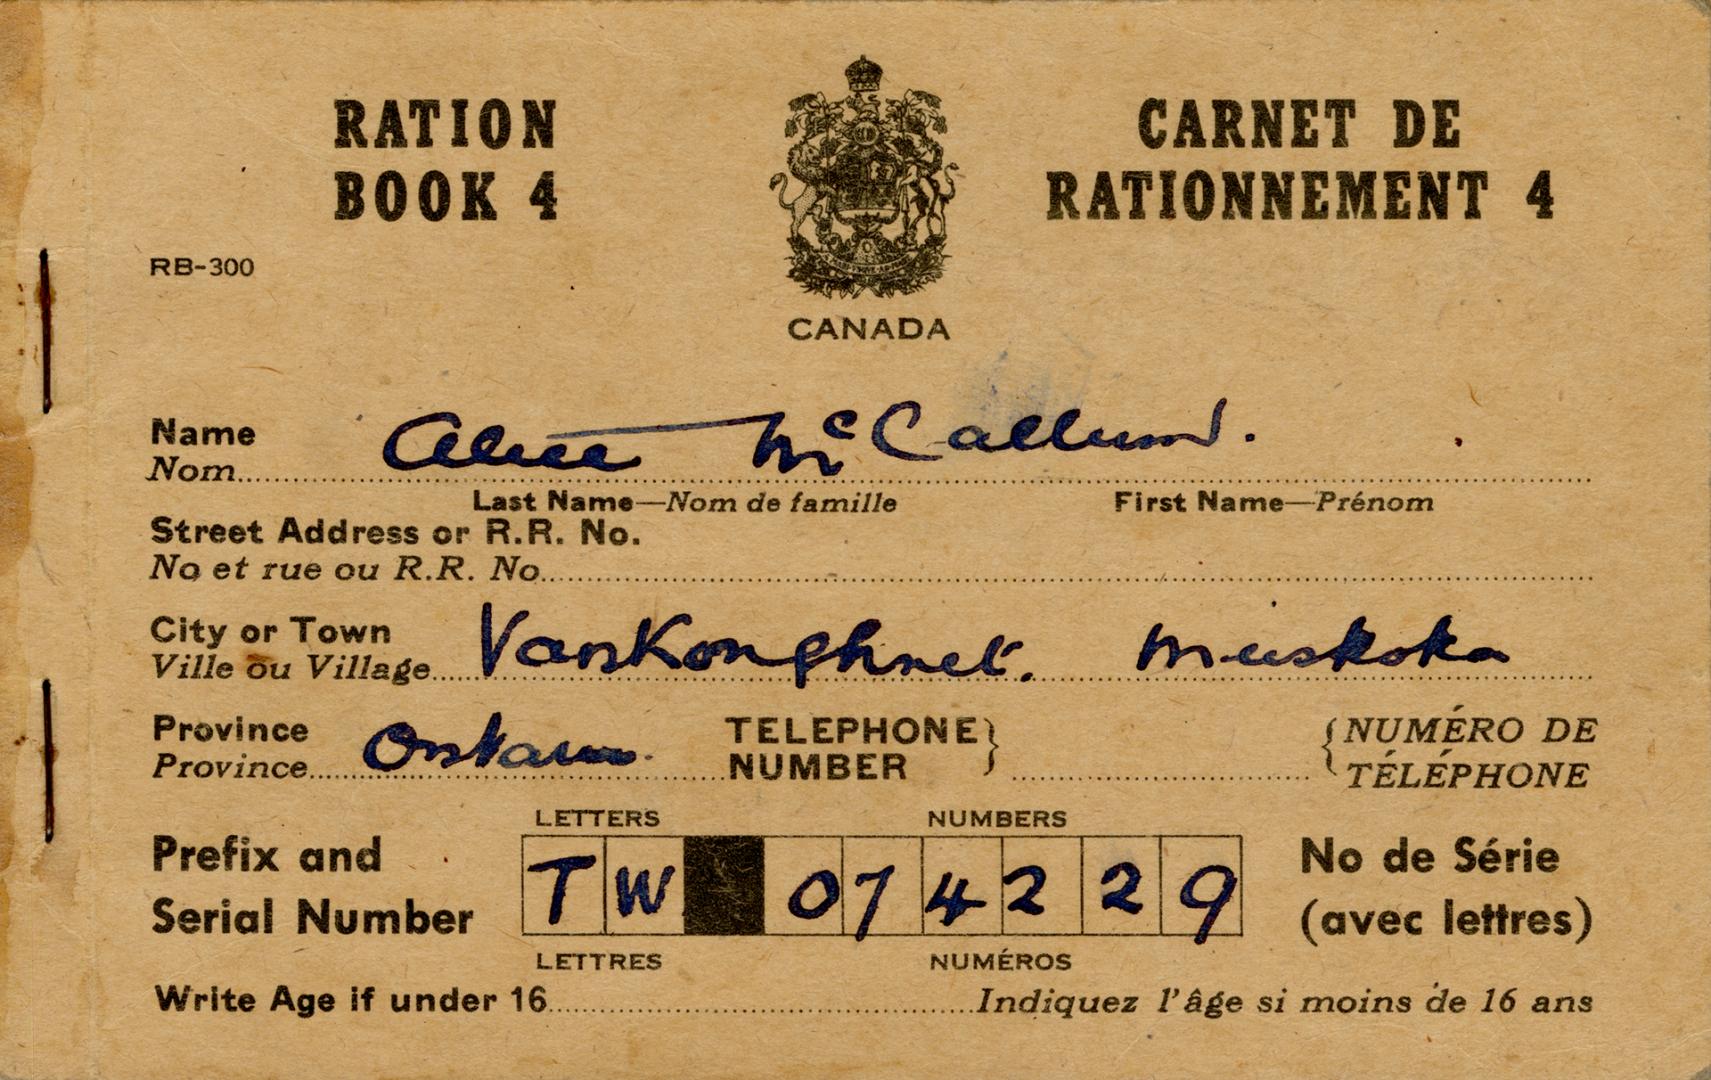 RATION BOOK 4
CARNET DE RATIONNEMENT 4
RB-300
CANADA
Name Alice McCallum.
Nom
Last Name—Nom de famille First Name—Prénom
Street Address or R.R. No.
No et rue ou R.R. No
City or Town VanKoughnet. Muskoka
Ville ou Village
Province Ontario. TELEPHONE NUMBER NUMÉRO DE TÉLÉPHONE
Province
LETTERS NUMBERS
Prefix and Serial Number TW 074229 No de Série (avec lettres)
LETTRES NUMÉROS
Write Age if under 16 Indiquez l'âge si moins de 16 ans